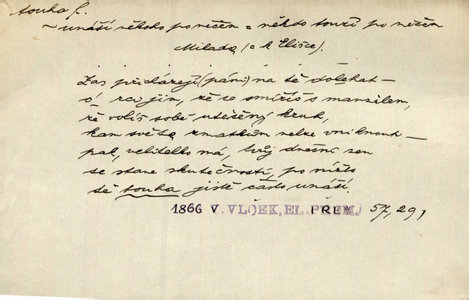 touha f.
~ unáší někoho po něčem = někdo touží po něčem
Milada (o k Elišce).
Zas přicházejí (páni) na tě dotíkat –
ó, rci jim, že se smíříš s manželem,
že volíš sobě utěšený kruh,
kam světa zmatkům nelze vniknout –
pak, velitelko má, tvůj dnešní sen
se stane skutečností, po níž
tě touha jistě často unáší.
1866 V. VLČEK, EL. PŘEM. 57, 291